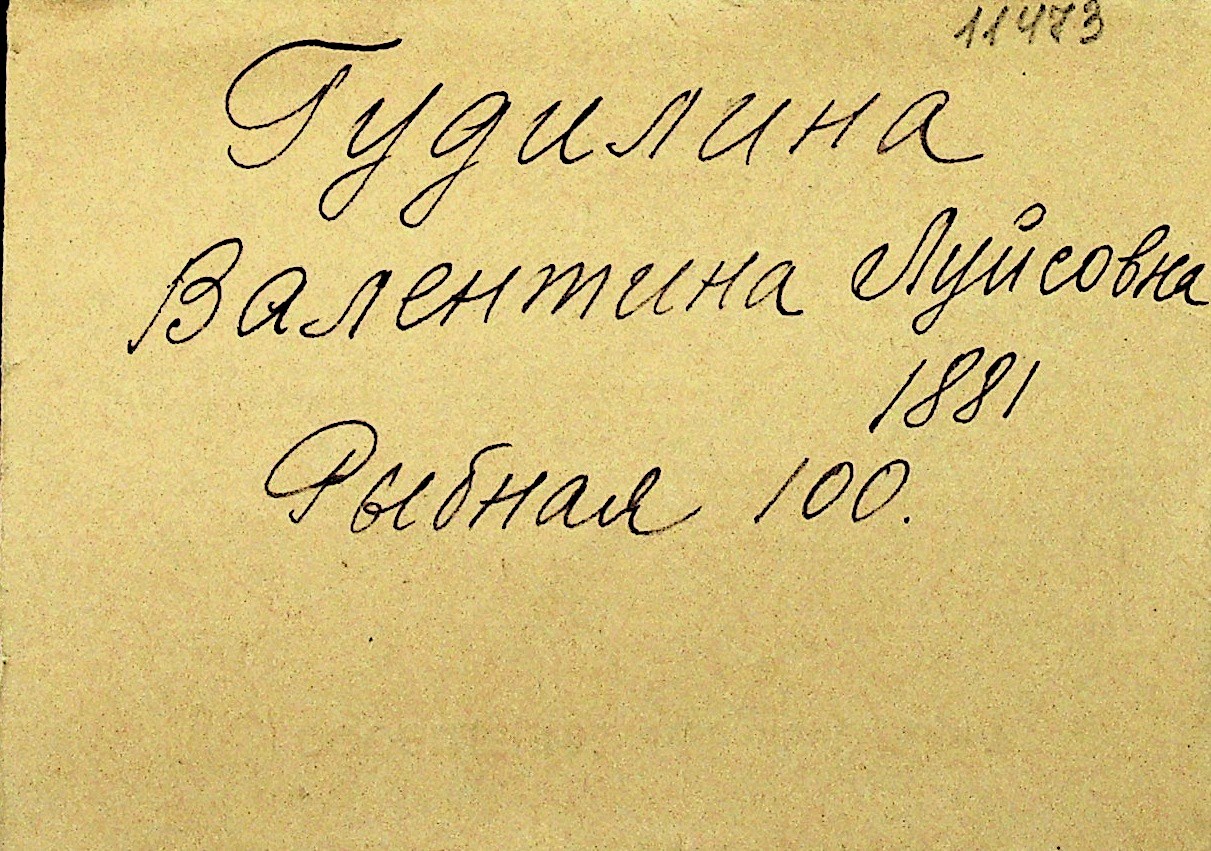 11473
Гудилина
Валентина Луйсовна
1881
Рыбная 100.